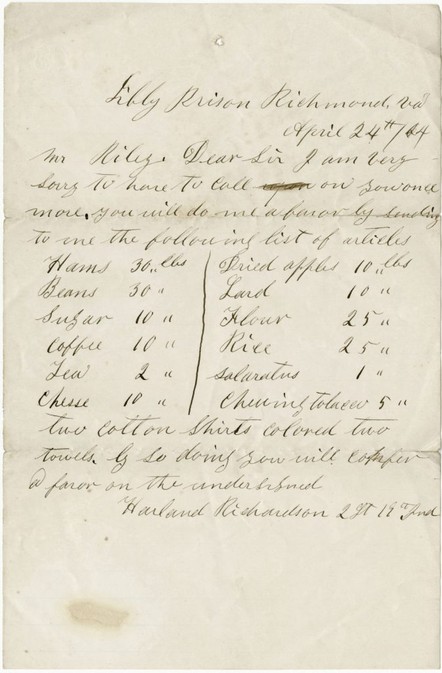 Libby Prison Richmond, Va
April 24th/64
Mr Riley. Dear Sir I am very
sorry to have to call upon on you once
more. you will do me a favor by sending
to me the following list of articles
Hams 30 " lbs
Beans 30 "
Sugar 10 "
Coffee 10 "
Tea 2 "
Chesse 10 "
Dried apples 10 " lbs
Lard 10 "
Flour 25 "
Rice 25 "
Salaratus 1 "
Chewing tobacco 5 "
two cotton Shirts colored two
towels. By So doing you will confer
a favor on the undersigned
Harland Richardson 2 Lt 19th Ind